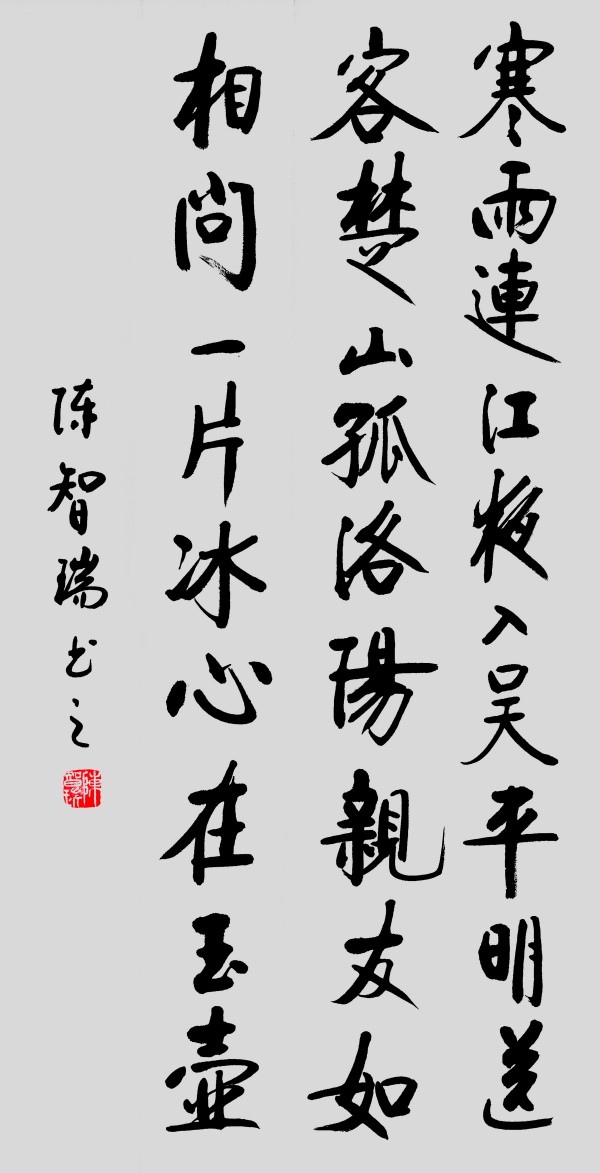 寒雨連江夜入吴平明送
客楚山孤洛陽親友如
相问一片冰心在玉壺
陈智瑞书之